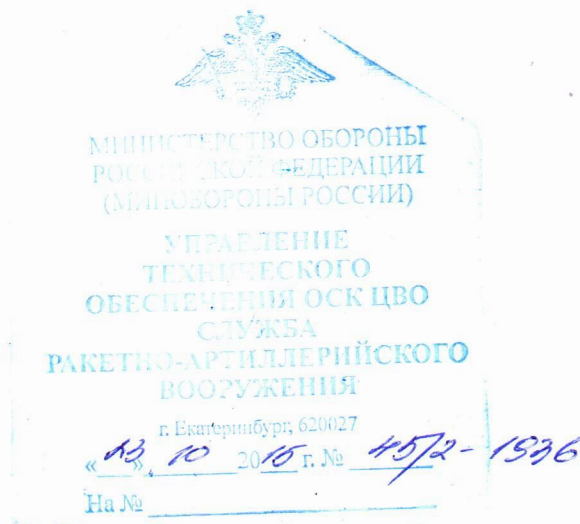 МИНИСТЕРСТВО ОБОРОНЫ
РОССИЙСКОЙ ФЕДЕРАЦИИ
(МИНОБОРОНЫ РОССИИ)
УПРАВЛЕНИЕ
ТЕХНИЧЕСКОГО
ОБЕСПЕЧЕНИЯ ОСК ЦВО
СЛУЖБА
РАКЕТНО-АРТИЛЛЕРИЙСКОГО
ВООРУЖЕНИЯ
г. Екатеринбург, 620027
«23» 10 2015 г. № 45/2-1936
На №